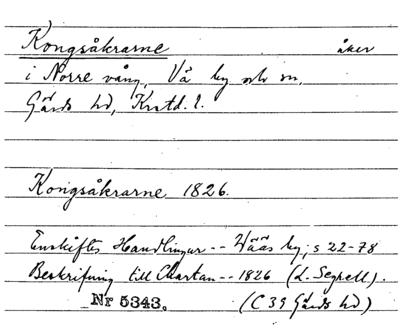 Kongsåkrarne åker
i Norre vång, Vä by och sn,
Gärds hd, Kristd. l.
Kongsåkrarne 1826.
Enskiftes Handlingar -- Wääs by, s 22-78
Beskrifning till Chartan -- 1826 (L. Segrell).
Nr 5343. (C 39 Gärds hd)